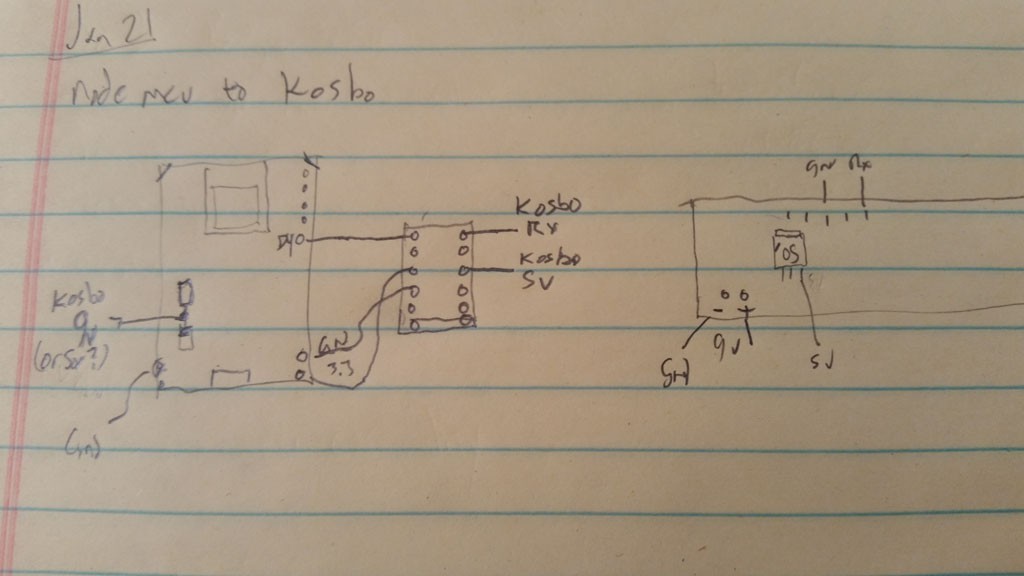 Jan 21
Node mcu to Kosbo
GN Rx
Kosbo
Rx
D4
Kosbo
5V
'05
Kosbo
9V
(or 5v?)
GN
3.3
- +
GND
9V
5V
GND